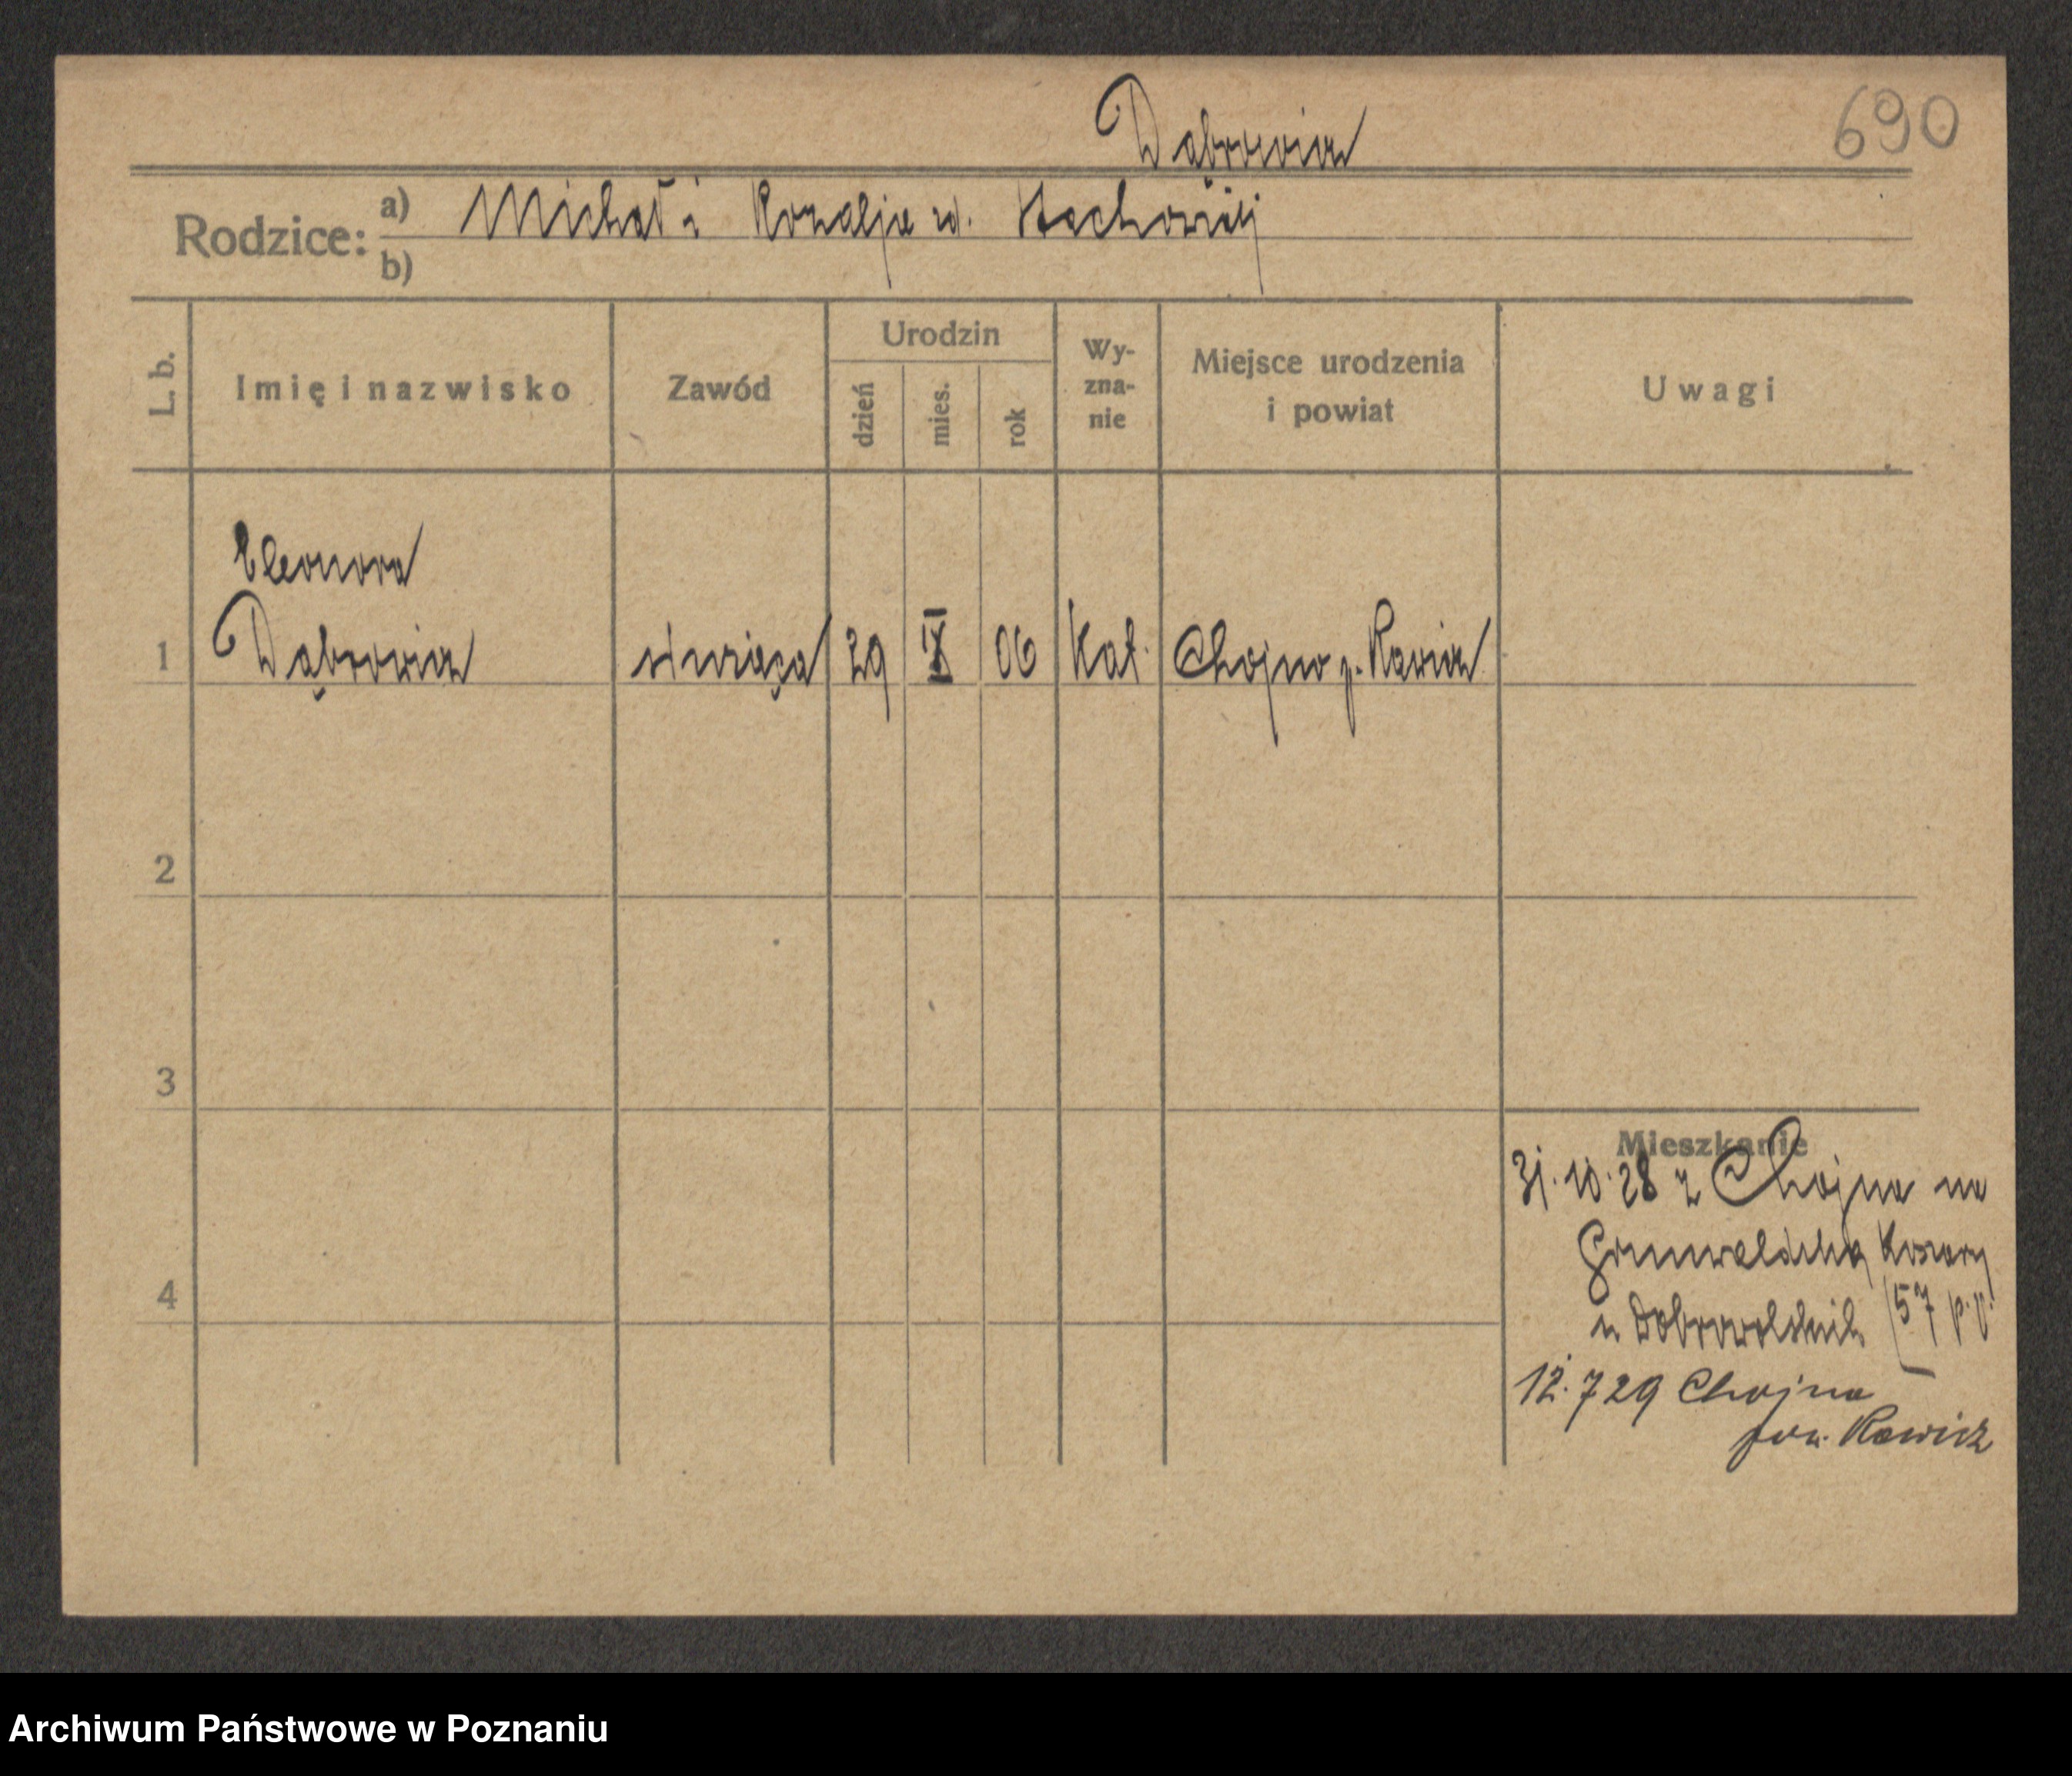 Dąbrowicz
690
Rodzice: a) Michał i Rozalja zd.
b)
L. b.
Imię i nazwisko
Zawód
Urodzin
dzień
mies.
rok
Wy-
zna-
nie
Miejsce urodzenia
i powiat
Uwagi
Eleonora
1 Dąbrowicz służąca 29 IX 06 Kat. Chojno p. Rawicz
2
3
4
Mieszkanie
31.10.28 z Chojna na
Grunwaldzką Koszary
u Dobrowolskich (57 p.p.
12.7 29 Chojno
pow. Rawicz
Archiwum Państwowe w Poznaniu